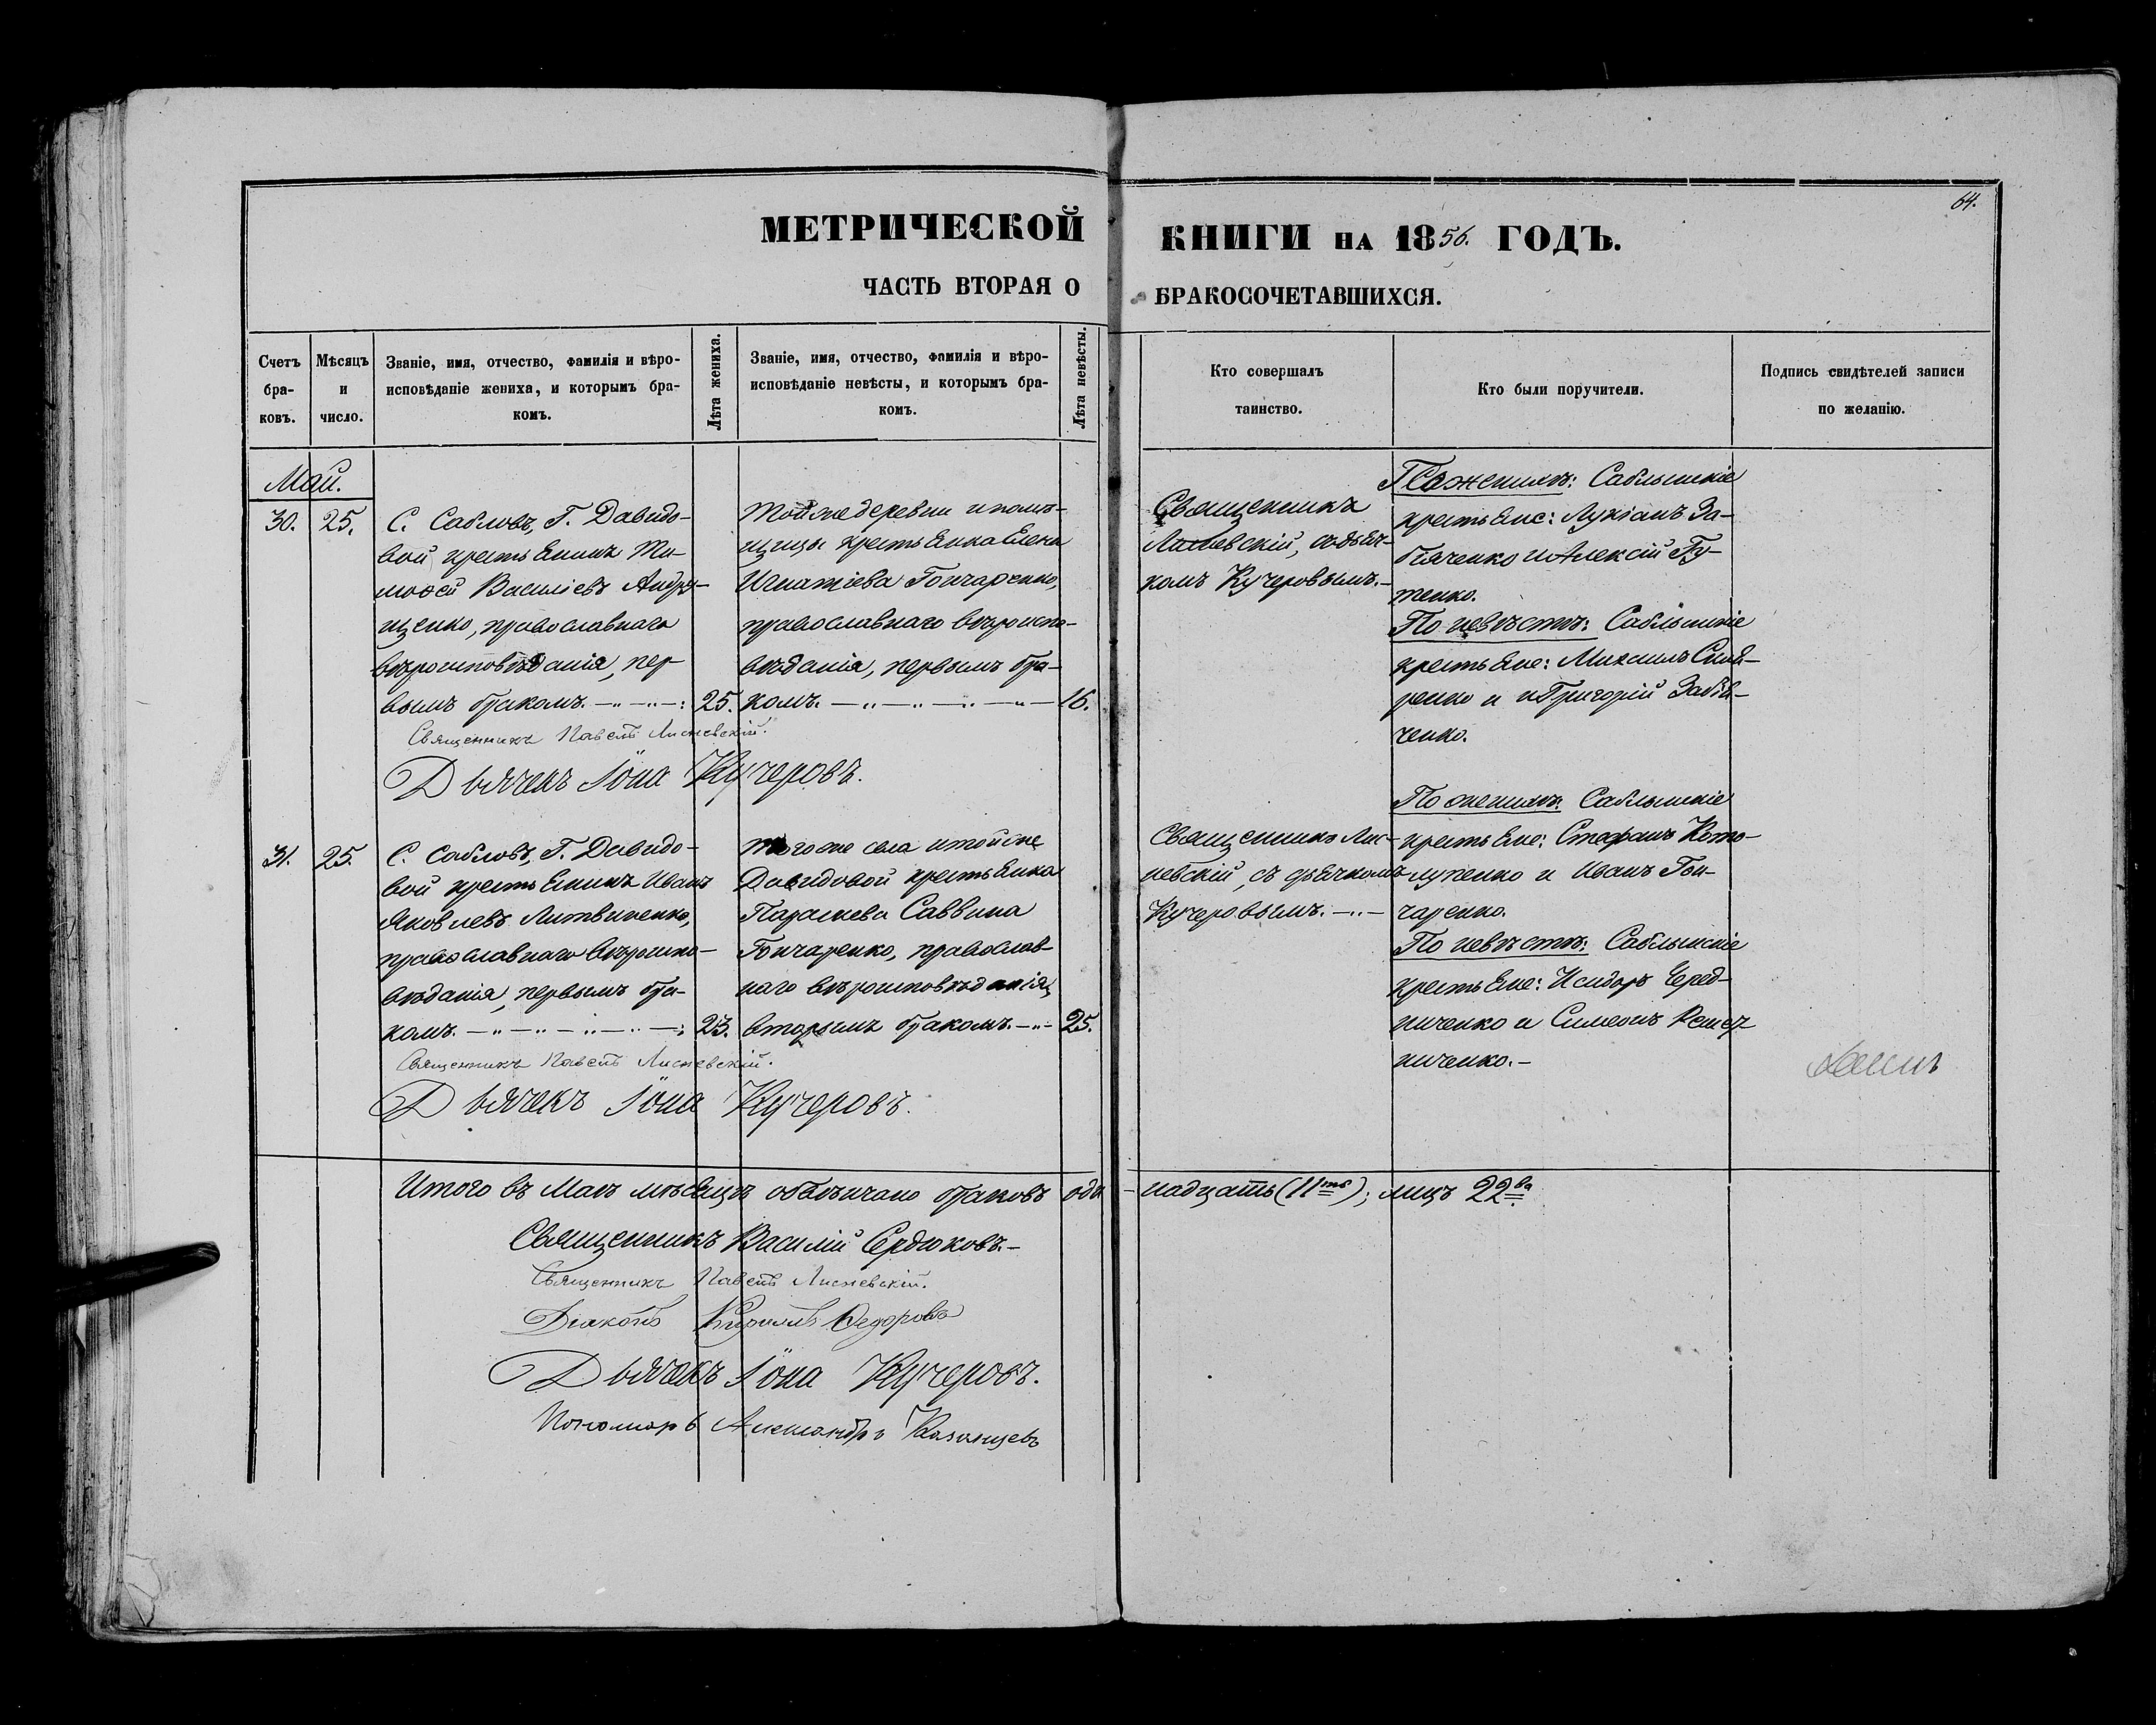 64.
МЕТРИЧЕСКОЙ КНИГИ НА 1856. ГОДЪ.
ЧАСТЬ ВТОРАЯ О БРАКОСОЧЕТАВШИХСЯ.
Счетъ
бра-
ковъ.
Мѣсяцъ
и
число.
Званіе, имя, отчество, фамилія и вѣро-
исповѣданіе жениха, и которымъ бра-
комъ.
Лѣта жениха.
Званіе, имя, отчество, фамилія и вѣро-
исповѣданіе невѣсты, и которымъ бра-
комъ.
Лѣта невѣсты.
Кто совершалъ
таинство.
Кто были поручители.
Подпись свидѣтелей записи
по желанію.
Май.
30. 25.
С. Сабловъ, Г. Давидо-
вой крестьянинъ Ти-
моѳей Василіевъ Андру-
щенко, православнаго
вѣроисповѣданія, пер-
вымъ бракомъ. 25.
Той же деревни и помѣ-
щицы крестьянка Елена
Игнатіева Гончаренко,
православнаго вѣроиспо-
вѣданія, первымъ бра-
комъ. 16.
Священникъ
Лисневскій, съ дьяч-
комъ Кучеровымъ.
По женихѣ: Саблынскіе
крестьяне: Лукіанъ За-
бяченко и Алексій Гу-
тенко.
По невѣстѣ: Саблынскіе
крестьяне: Михаилъ
ренко и Григорій Забія-
ченко.
Священникъ Павелъ Лисневскій.
Дьячекъ Іона Кучеровъ.
31. 25.
С. Сабловъ, Г. Давидо-
вой крестьянинъ Иванъ
Яковлевъ Литвиненко,
православнаго вѣроиспо-
вѣданія, первымъ бра-
комъ. 23.
Того же села и той же
Давидовой крестьянка
Параскева Саввина
Гончаренко, православ-
наго вѣроисповѣданія,
вторымъ бракомъ. 25.
Священникъ Лис-
невскій, съ дьячкомъ
Кучеровымъ.
По женихѣ: Саблынскіе
крестьяне: Стефанъ Кото-
лупенко и Иванъ Гон-
чаренко.
По невѣстѣ: Саблынскіе
крестьяне: Исидоръ Черед-
ниченко и Симеонъ
ниченко.
Священникъ Павелъ Лисневскій.
Дьячекъ Іона Кучеровъ.
Итого въ Маѣ мѣсяцѣ обвѣнчано браковъ одинадцать (11ть); лицъ 22ва.
Священникъ Василій Сердюковъ.
Священникъ Павелъ Лисневскій.
Діаконъ Кириллъ Ѳедоровъ
Дьячекъ Іона Кучеровъ.
Пономарь Александръ Казанцевъ